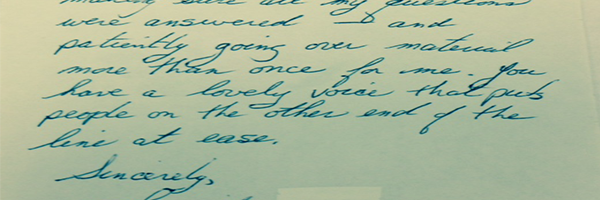 making sure all my questions
were answered and
patiently going over material
more than once for me. You
have a lovely voice that puts
people on the other end of the
line at ease.
Sincerely,